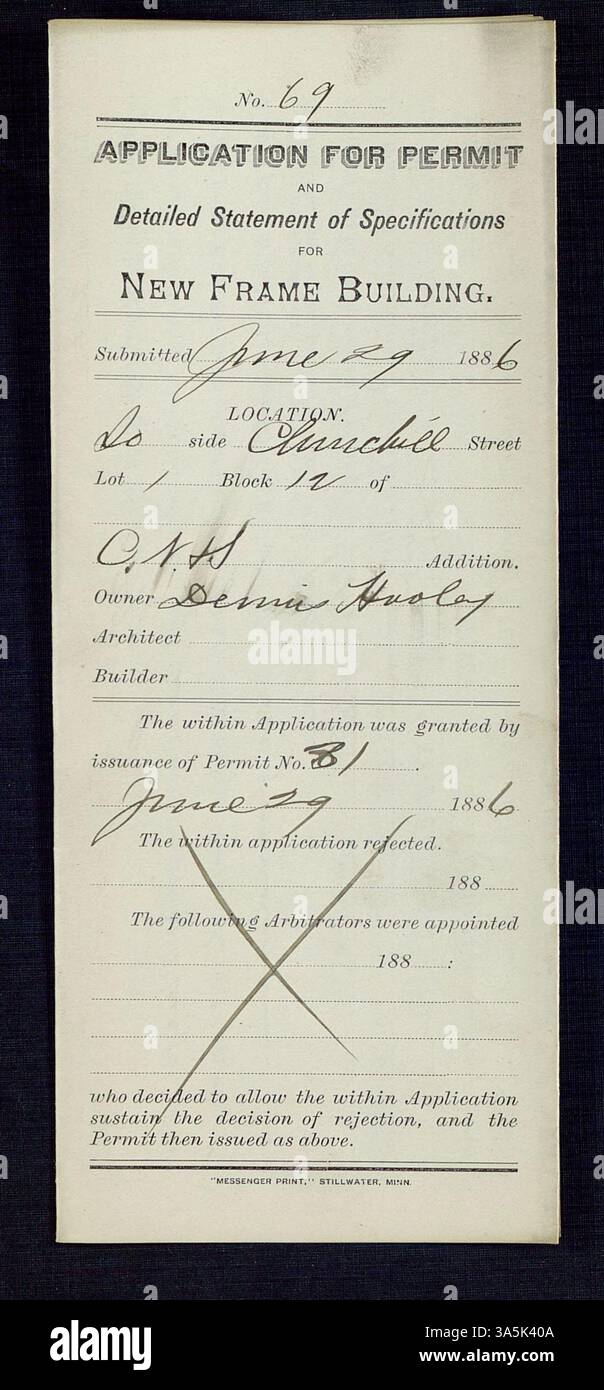 No. 69
APPLICATION FOR PERMIT
AND
Detailed Statement of Specifications
FOR
NEW FRAME BUILDING.
Submitted June 29 1886
LOCATION.
So side Churchill Street
Lot 1 Block 12 of
C. N. & S Addition.
Owner Dennis Hooley
Architect
Builder
The within Application was granted by
issuance of Permit No. 81.
June 29 1886
The within application rejected.
188
The following Arbitrators were appointed
188 :
who decided to allow the within Application
sustain the decision of rejection, and the
Permit then issued as above.
"MESSENGER PRINT," STILLWATER, MINN.
alamy
Image ID: 3A5K40A
www.alamy.com